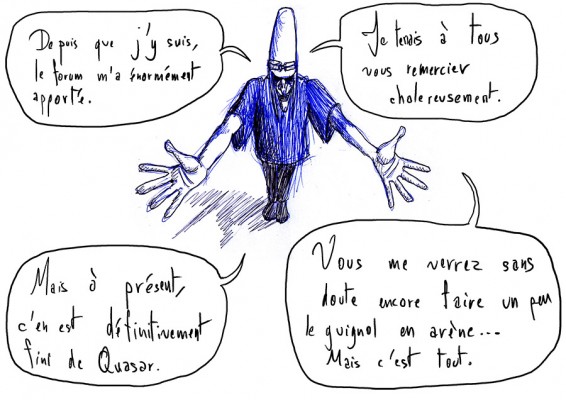 Depuis que j'y suis,
le forum m'a énormément
apporté.
Je tenais à tous
vous remercier
chaleureusement.
Mais à présent,
c'en est définitivement
fini de Quasar.
Vous me verrez sans
doute encore faire un peu
le guignol en arène...
Mais c'est tout.